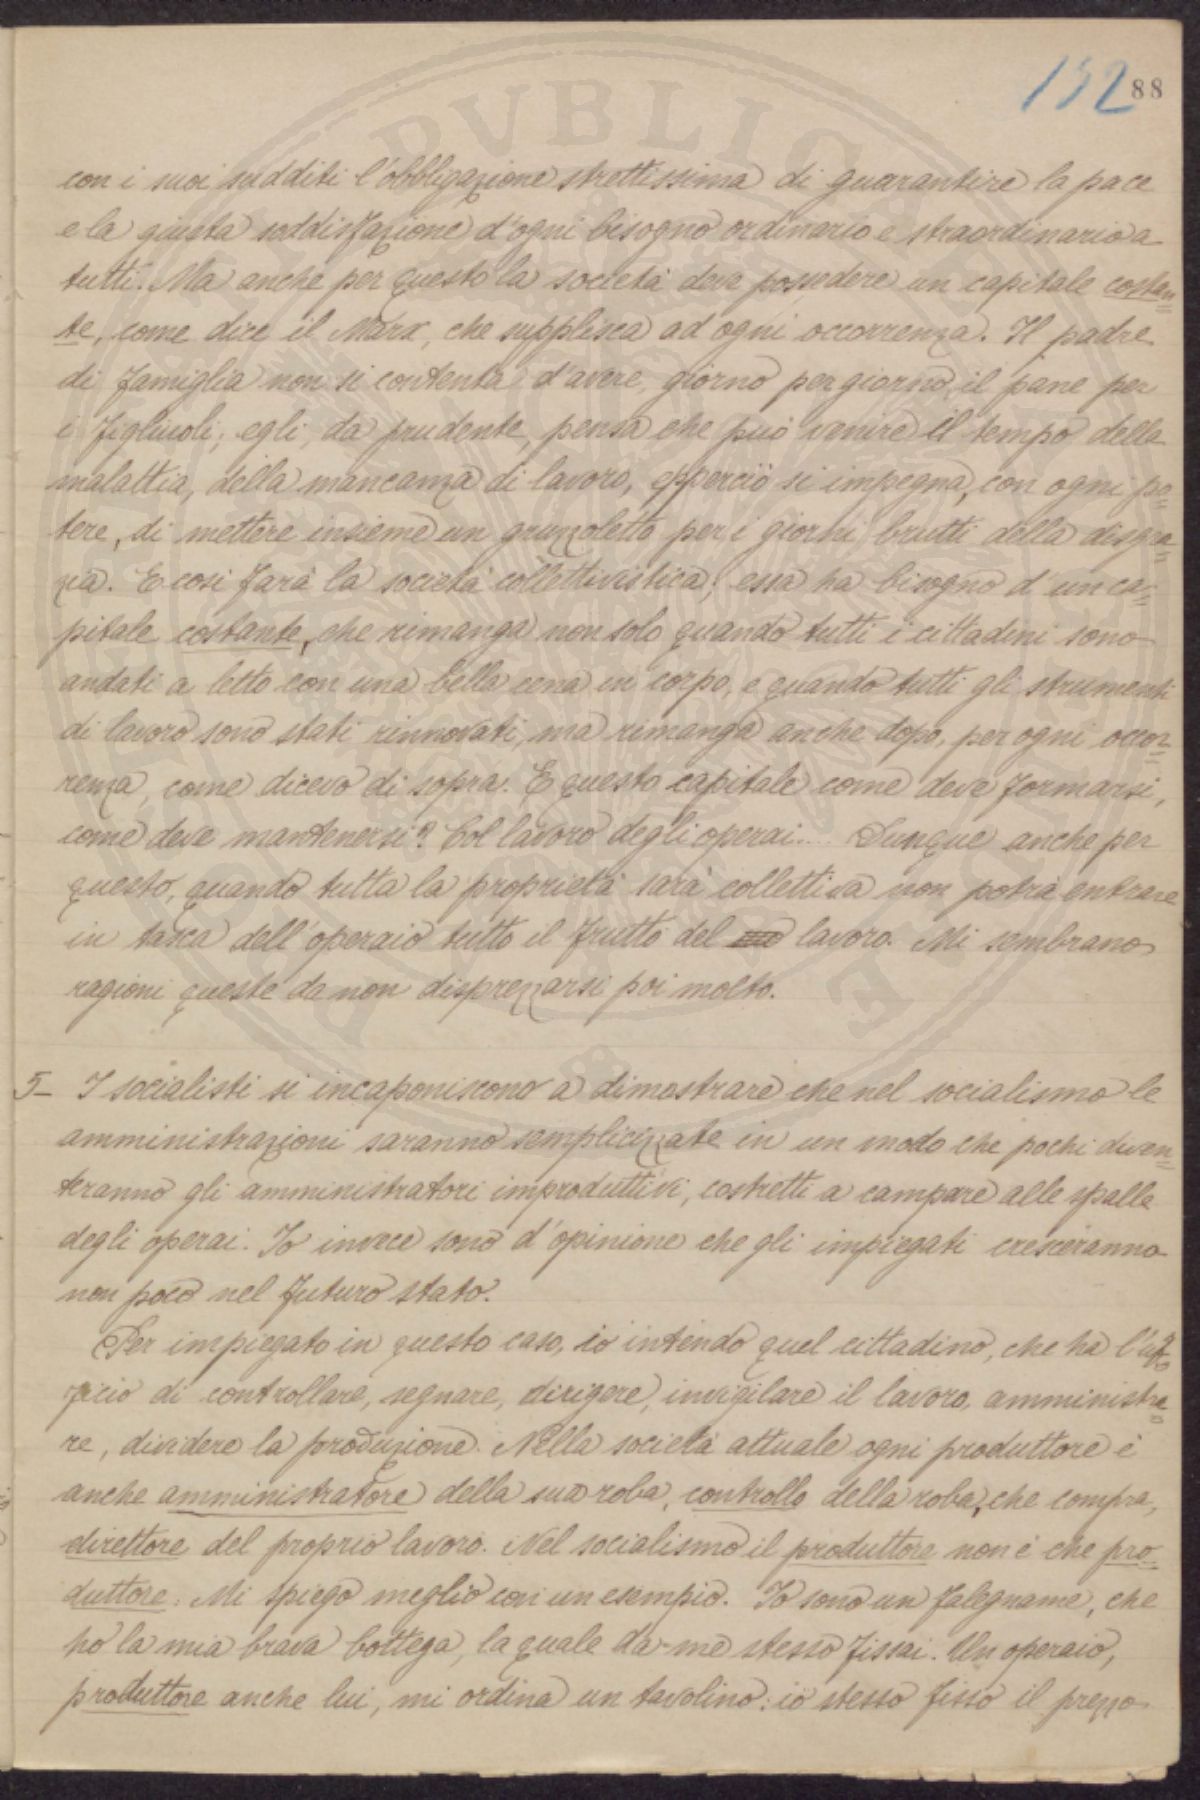 152 88
con i suoi sudditi l'obbligazione strettissima di guarantire la pace
e la giusta soddisfazione d'ogni bisogno ordinario e straordinario a
tutti. Ma anche per questo la società deve possedere un capitale costan=
te, come dice il Marx, che supplisca ad ogni occorrenza. Il padre
di famiglia non si contenta d'avere, giorno per giorno, il pane per
i figliuoli; egli, da prudente, pensa che può venire il tempo della
malattia, della mancanza di lavoro, epperciò si impegna, con ogni po=
tere, di mettere insieme un gruzzoletto per i giorni brutti della disgra=
zia. E così farà la società collettivistica; essa ha bisogno d'un ca=
pitale costante, che rimanga non solo quando tutti i cittadini sono
andati a letto con una bella cena in corpo, e quando tutti gli strumenti
di lavoro sono stati rinnovati, ma rimanga anche dopo, per ogni occor=
renza, come dicevo di sopra. E questo capitale come deve formarsi,
come deve mantenersi? Col lavoro degli operai.... Dunque anche per
questo, quando tutta la proprietà sarà collettiva non potrà entrare
in tasca dell'operaio tutto il frutto del lavoro. Mi sembrano
ragioni queste da non disprezzarsi poi molto.
5- I socialisti si incaponiscono a dimostrare che nel socialismo le
amministrazioni saranno semplicizzate in un modo che pochi diven=
teranno gli amministratori improduttivi, costretti a campare alle spalle
degli operai. Io invece sono d'opinione che gli impiegati cresceranno
non poco nel futuro stato.
Per impiegato in questo caso, io intendo quel cittadino, che ha l'uf=
ficio di controllare, segnare, dirigere, invigilare il lavoro, amministra=
re, dividere la produzione. Nella società attuale ogni produttore è
anche amministratore della sua roba, controllo della roba, che compra,
direttore del proprio lavoro. Nel socialismo il produttore non è che pro=
duttore. Mi spiego meglio con un esempio. Io sono un falegname, che
ho la mia brava bottega, la quale da-me stesso fissai. Un operaio,
produttore anche lui, mi ordina un tavolino: io stesso fisso il prezzo